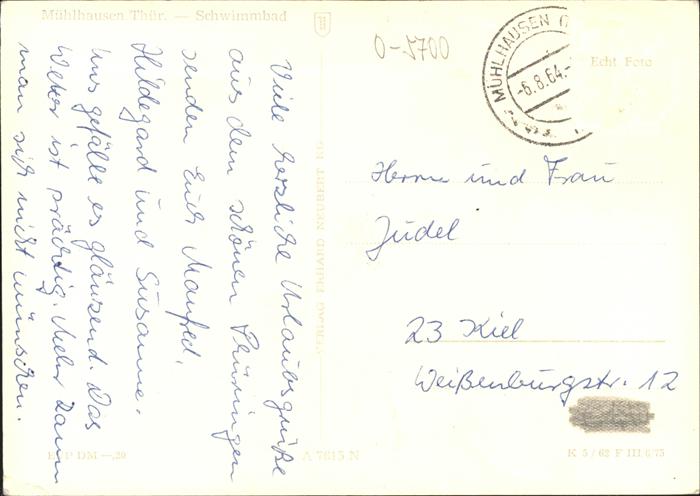 Mühlhausen/Thür. — Schwimmbad
Viele herzliche Urlaubsgrüße
aus dem schönen Thüringen
senden Euch Manfred,
Hildegard und Susanne.
Uns gefällt es glänzend. Das
Wetter ist prächtig. Mehr kann
man sich nicht wünschen.
0-5700
MÜHLHAUSEN (T
-6.8.64.-
Echt Foto
Herrn und Frau
Judel
23 Kiel
Weißenburgstr. 12
VERLAG ERHARD NEUBERT KG
EVP DM —,20
A 7615 N
K 5/62 F III 6/75